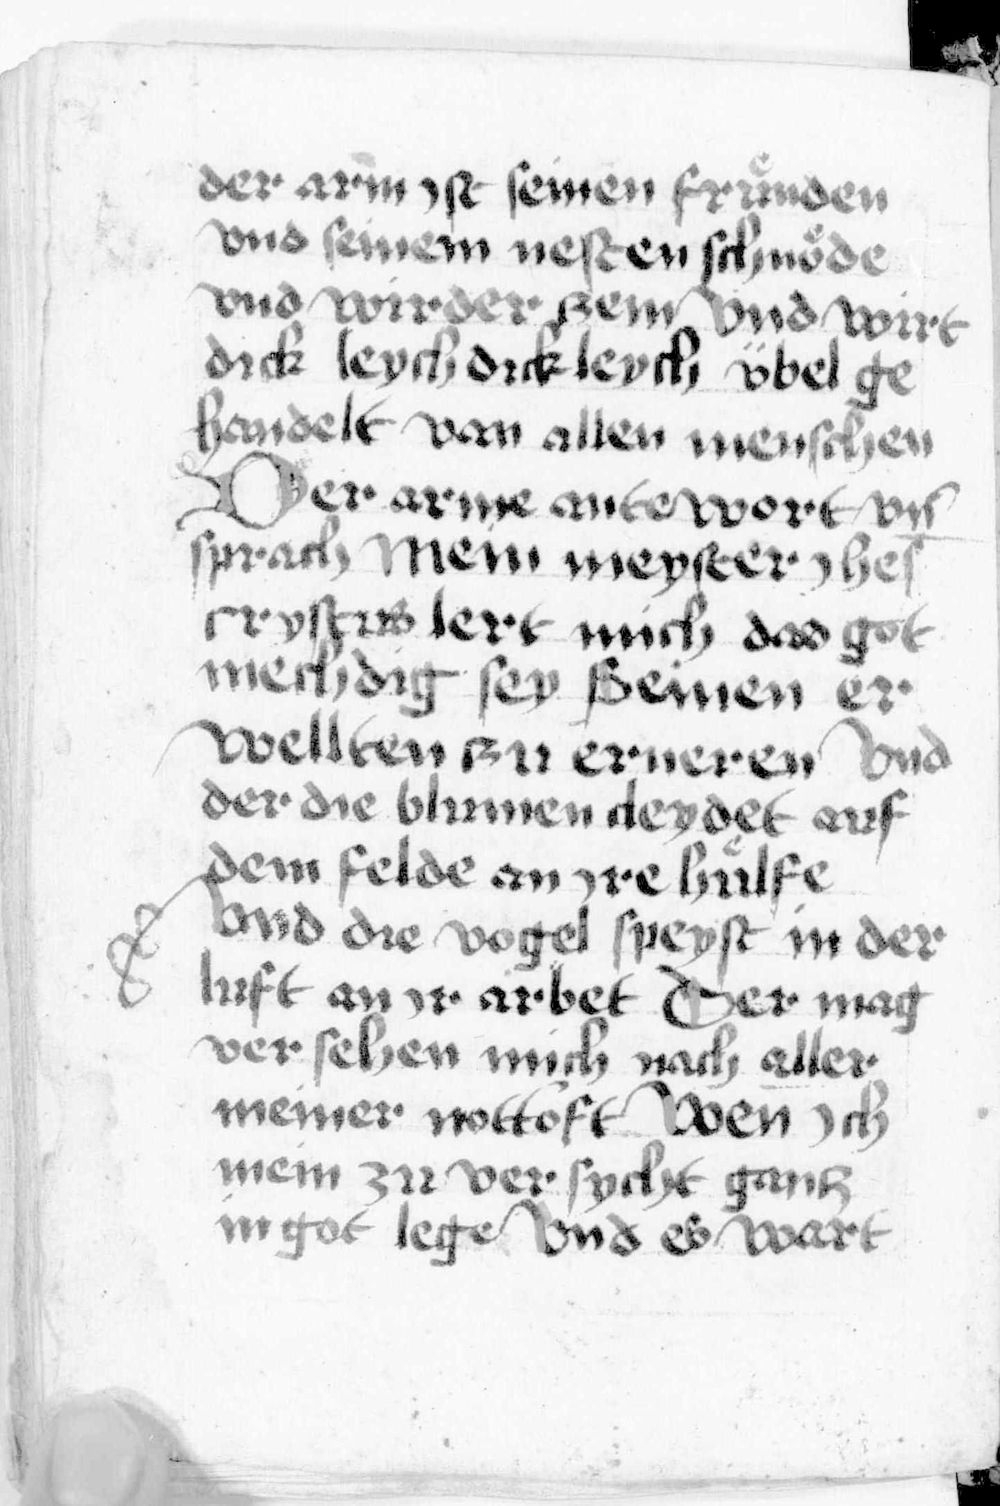 der arm yst seinen fruͤnden
vnd seinem nesten schnoͤde
vnd wirder zem Vnd wirt
dick leych dick leych v̈bel ge
handelt van allen menschen
Der arme antewort vn̄
sprach Mein meyster yhes
crystus lert mich das got
mechdig sey Seinen er
wellten zu erneren Vnd
der die blumen cleydet auf
dem felde an yre huͤlfe
Vnd die vogel speyst in der
luft an yr arbet Der mag
ver sehen mich nach aller
meiner nottoft Wen̄ ych
mein zu ver sycht gantz
in got lege Vnd es wart